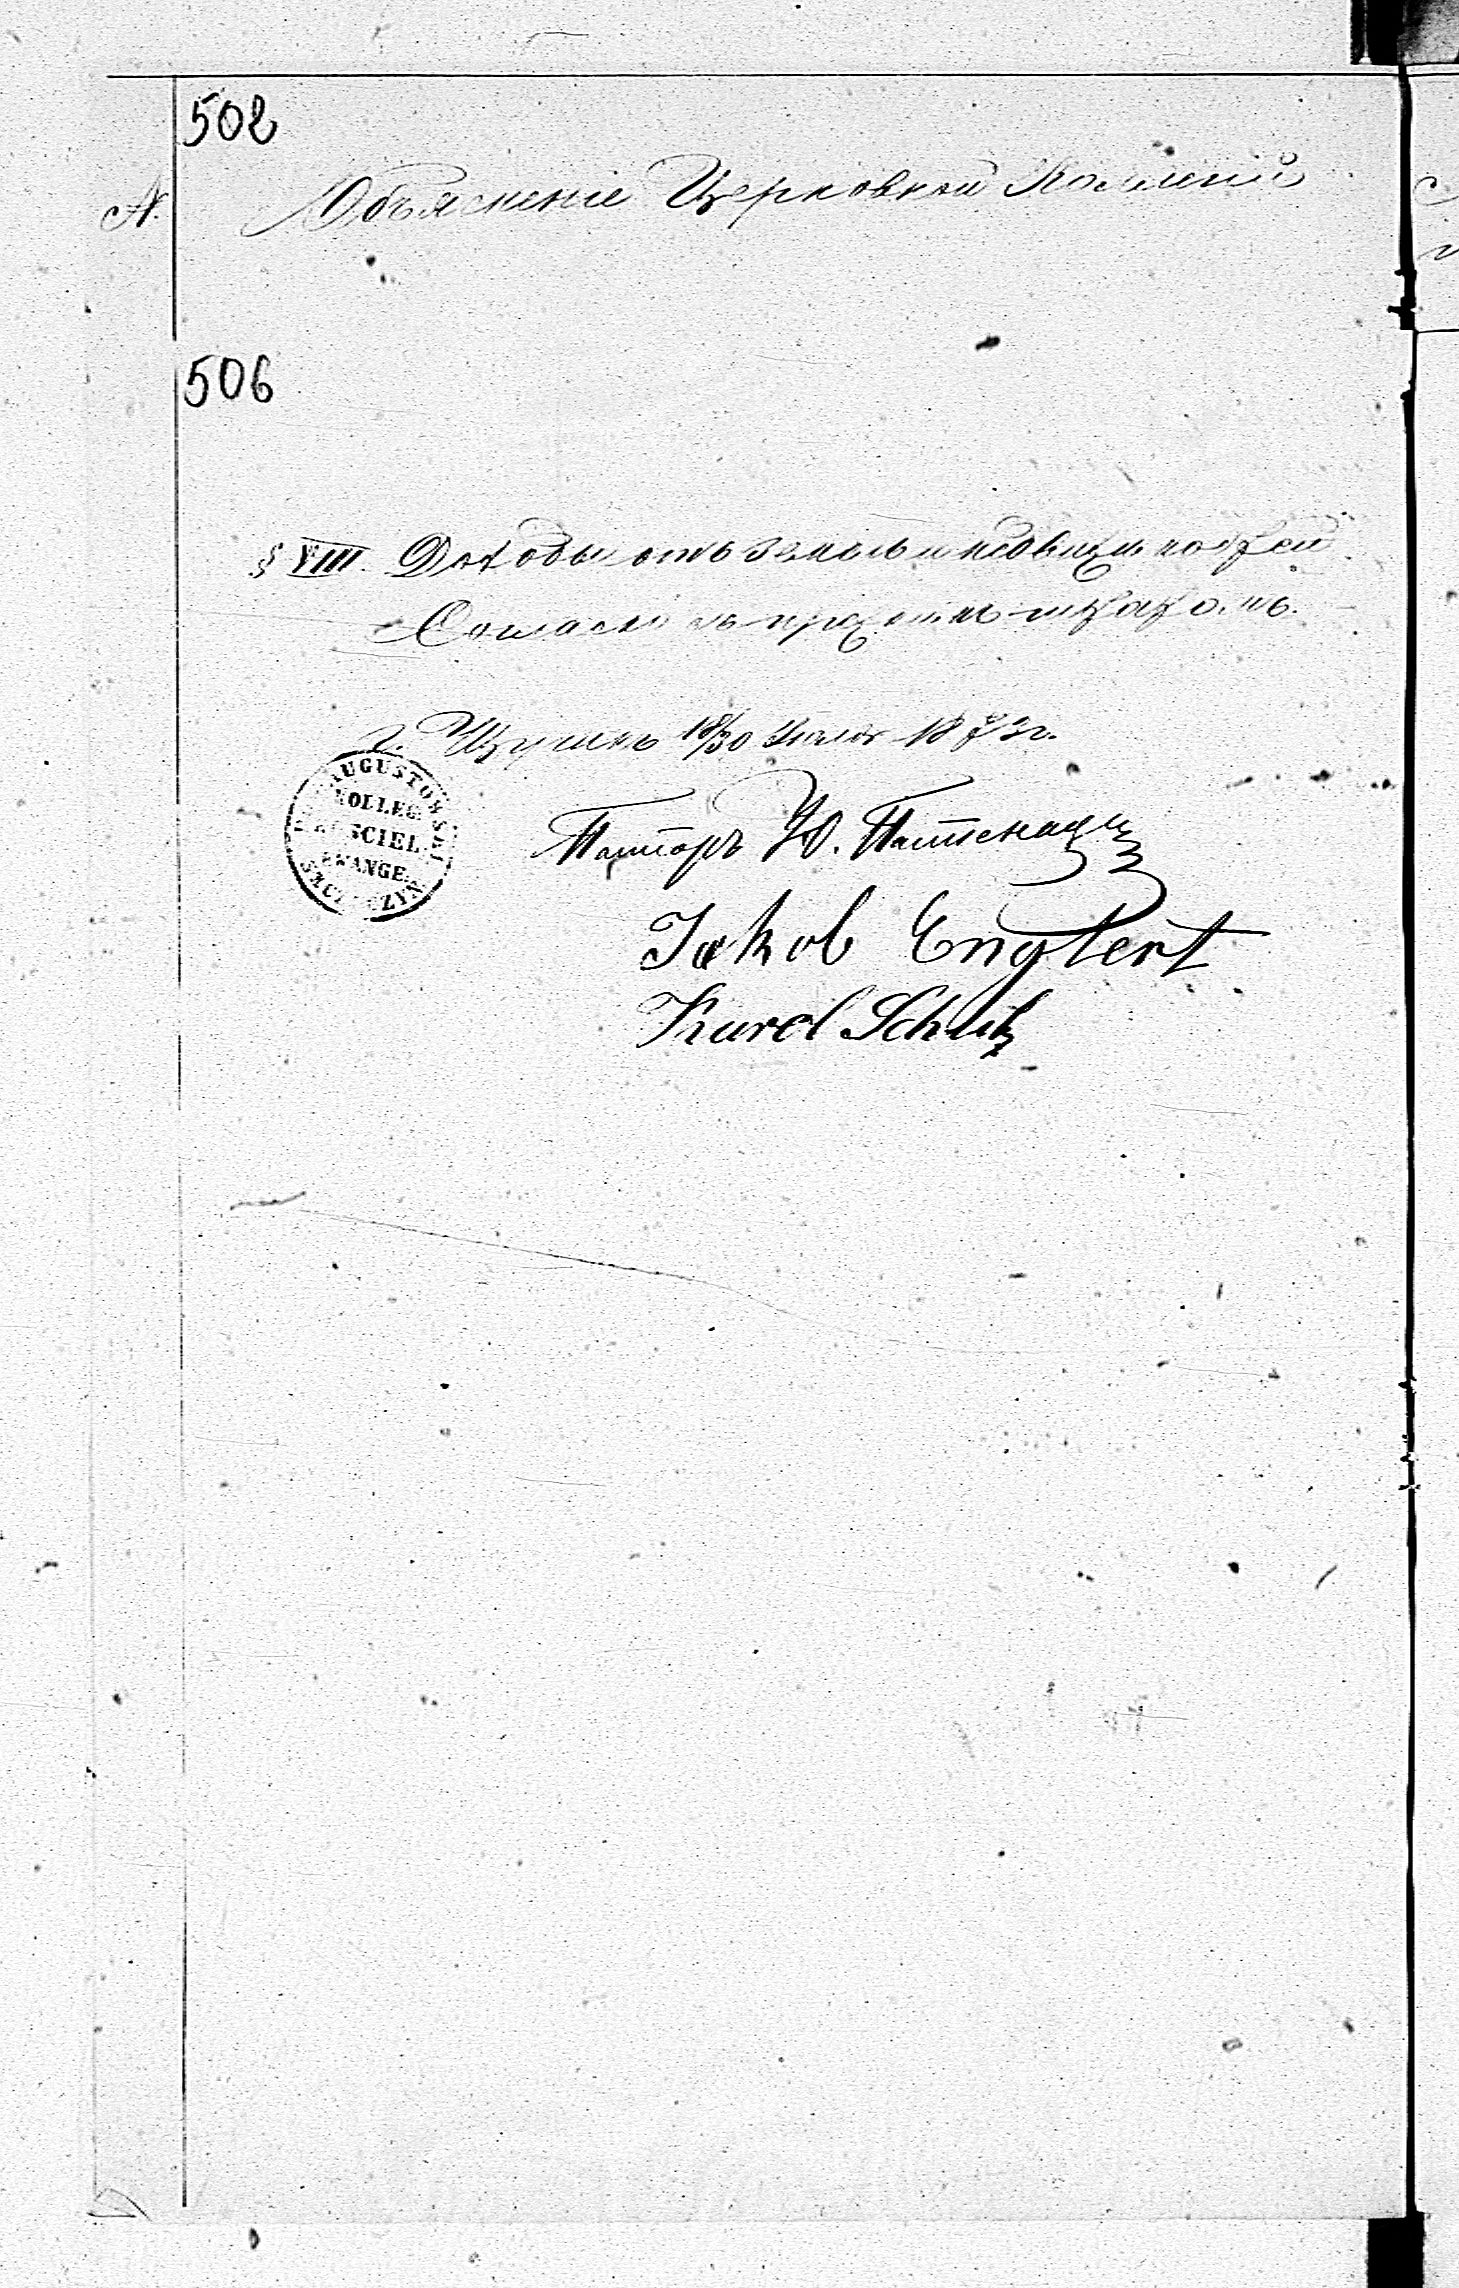 502
N. Объясненіе Церковной Коллегіи
506
§ VIII. Доходы отъ земель и недвижимостей
Согласно съ
г. Щучинъ 18/30 Іюля 1873 г.
AUGUSTOWSKI
KOLLEG.
KOSCIEL.
EWANGE.
SZCZUCZYN
Пасторъ Ю.
Jakob Englert
Karol Schulz